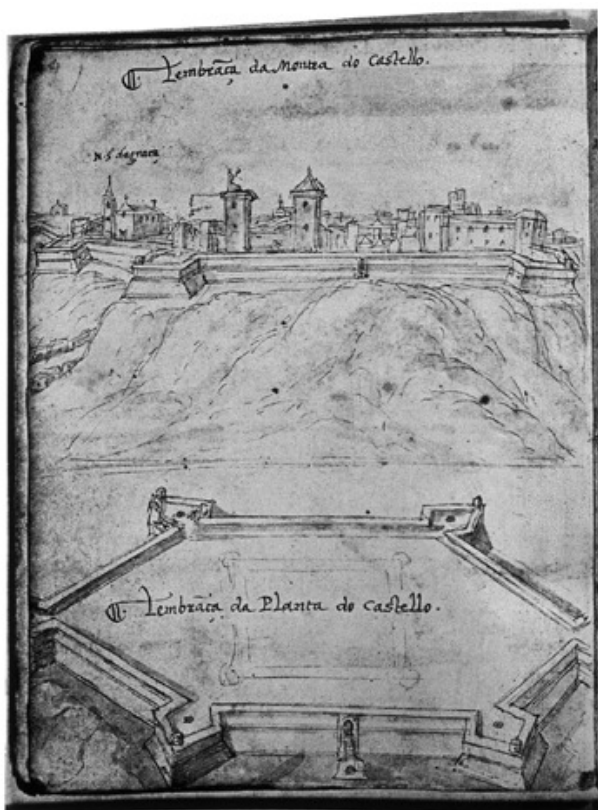 Lembrãça da Montea do Castello.
N. S. da graça
Lembrãça da Planta do Castello.